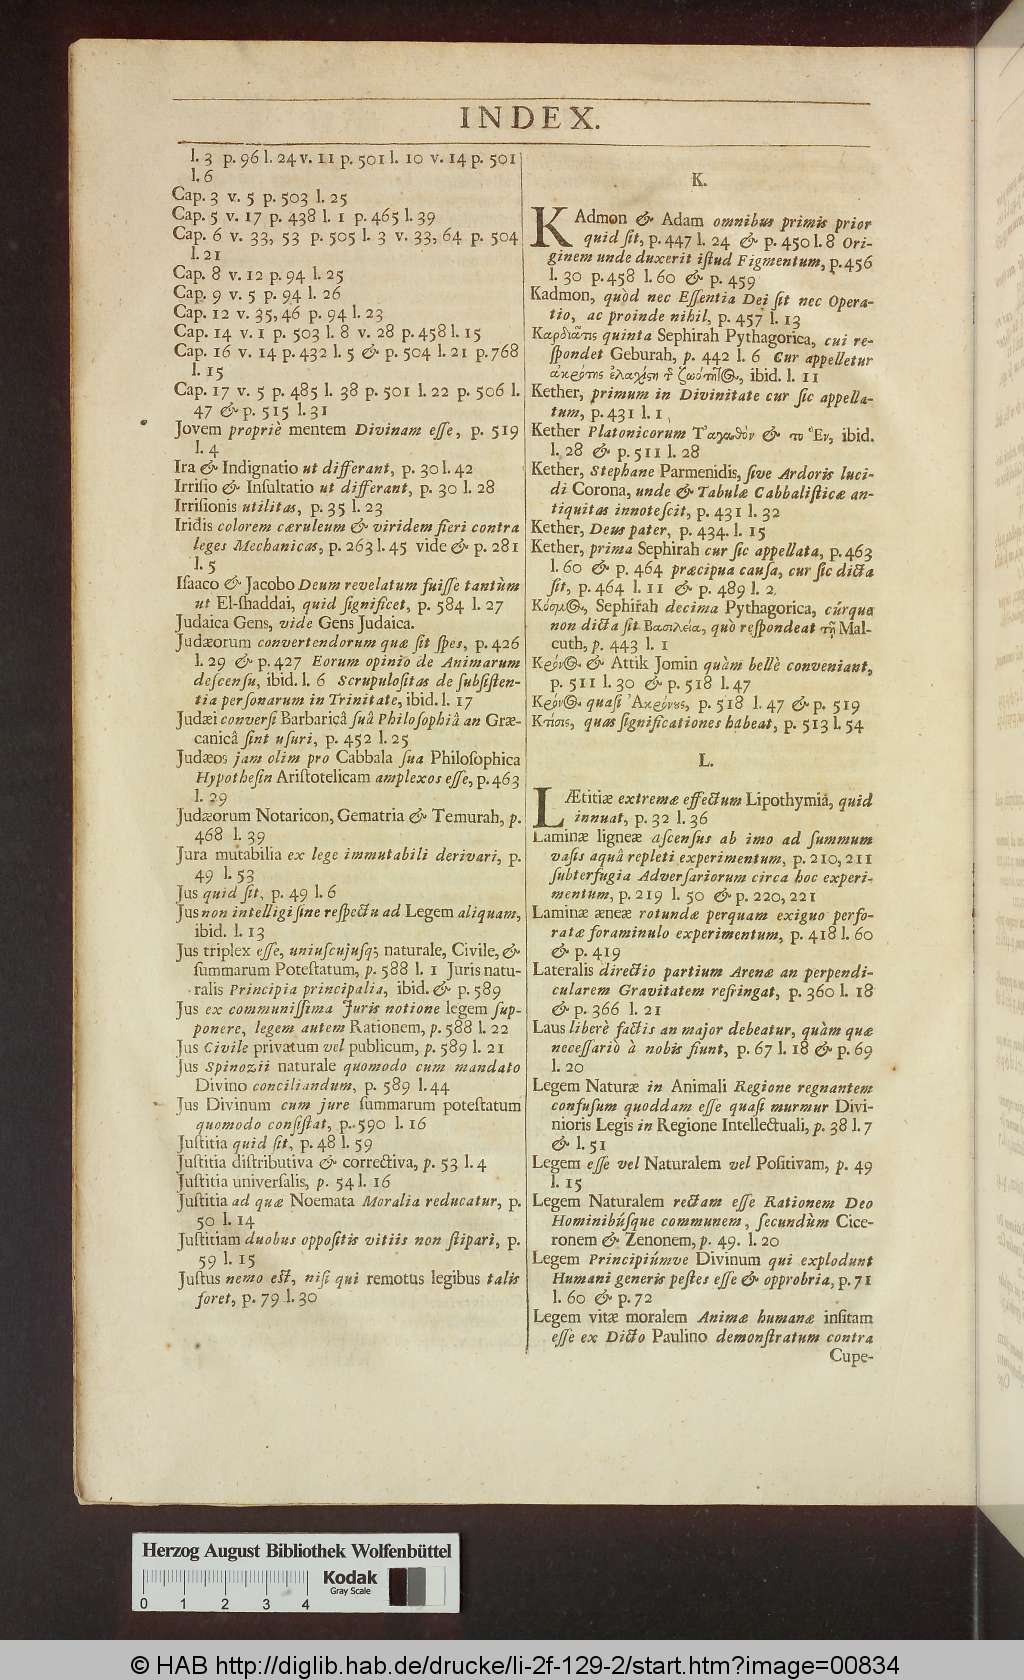 INDEX.
l. 3 p. 96 l. 24 v. 11 p. 501 l. 10 v. 14 p. 501
l. 6
Cap. 3 v. 5 p. 503 l. 25
Cap. 5 v. 17 p. 438 l. 1 p. 465 l. 39
Cap. 6 v. 33, 53 p. 505 l. 3 v. 33, 64 p. 504
l. 21
Cap. 8 v. 12 p. 94 l. 25
Cap. 9 v. 5 p. 94 l. 26
Cap. 12 v. 35, 46 p. 94 l. 23
Cap. 14 v. 1 p. 503 l. 8 v. 28 p. 458 l. 15
Cap. 16 v. 14 p. 432 l. 5 & p. 504 l. 21 p. 768
l. 15
Cap. 17 v. 5 p. 485 l. 38 p. 501 l. 22 p. 506 l.
47 & p. 515 l. 31
Jovem propriè mentem Divinam eſſe, p. 519
l. 4
Ira & Indignatio ut differant, p. 30 l. 42
Irriſio & Inſultatio ut differant, p. 30 l. 28
Irriſionis utilitas, p. 35 l. 23
Iridis colorem cæruleum & viridem fieri contra
leges Mechanicas, p. 263 l. 45 vide & p. 281
l. 5
Iſaaco & Jacobo Deum revelatum fuiſſe tantùm
ut El-ſhaddai, quid ſignificet, p. 584 l. 27
Judaica Gens, vide Gens Judaica.
Judæorum convertendorum quæ ſit ſpes, p. 426
l. 29 & p. 427 Eorum opinio de Animarum
deſcenſu, ibid. l. 6 Scrupuloſitas de ſubſiſten-
tia perſonarum in Trinitate, ibid. l. 17
Judæi converſi Barbaricâ ſuâ Philoſophiâ an Græ-
canicâ ſint uſuri, p. 452 l. 25
Judæos jam olim pro Cabbala ſua Philoſophica
Hypotheſin Ariſtotelicam amplexos eſſe, p. 463
l. 29
Judæorum Notaricon, Gematria & Temurah, p.
468 l. 39
Jura mutabilia ex lege immutabili derivari, p.
49 l. 53
Jus quid ſit, p. 49 l. 6
Jus non intelligi ſine reſpectu ad Legem aliquam,
ibid. l. 13
Jus triplex eſſe, uniuſcujuſq; naturale, Civile, &
ſummarum Poteſtatum, p. 588 l. 1 Juris natu-
ralis Principia principalia, ibid. & p. 589
Jus ex communiſſima Juris notione legem ſup-
ponere, legem autem Rationem, p. 588 l. 22
Jus Civile privatum vel publicum, p. 589 l. 21
Jus Spinozii naturale quomodo cum mandato
Divino conciliandum, p. 589 l. 44
Jus Divinum cum jure ſummarum poteſtatum
quomodo conſiſtat, p. 590 l. 16
Juſtitia quid ſit, p. 48 l. 59
Juſtitia diſtributiva & correctiva, p. 53 l. 4
Juſtitia univerſalis, p. 54 l. 16
Juſtitia ad quæ Noemata Moralia reducatur, p.
50 l. 14
Juſtitiam duobus oppoſitis vitiis non ſtipari, p.
59 l. 15
Juſtus nemo eſt, niſi qui remotus legibus talis
foret, p. 79 l. 30
K.
KAdmon & Adam omnibus primis prior
quid ſit, p. 447 l. 24 & p. 450 l. 8 Ori-
ginem unde duxerit iſtud Figmentum, p. 456
l. 30 p. 458 l. 60 & p. 459
Kadmon, quòd nec Eſſentia Dei ſit nec Opera-
tio, ac proinde nihil, p. 457 l. 13
Καρδιᾶτις quinta Sephirah Pythagorica, cui re-
ſpondet Geburah, p. 442 l. 6 Cur appelletur
ibid. l. 11
Kether, primum in Divinitate cur ſic appella-
tum, p. 431 l. 1
Kether Platonicorum Τἀγαθὸν & το Ἓν, ibid.
l. 28 & p. 511 l. 28
Kether, Stephane Parmenidis, ſive Ardoris luci-
di Corona, unde & Tabulæ Cabbaliſticæ an-
tiquitas innoteſcit, p. 431 l. 32
Kether, Deus pater, p. 434. l. 15
Kether, prima Sephirah cur ſic appellata, p. 463
l. 60 & p. 464 præcipua cauſa, cur ſic dicta
ſit, p. 464 l. 11 & p. 489 l. 2
Κόσμος, Sephirah decima Pythagorica, cúrque
non dicta ſit Βασιλεία, quò reſpondeat τῇ Mal-
cuth, p. 443 l. 1
Κρόνος & Attik Jomin quàm bellè conveniant,
p. 511 l. 30 & p. 518 l. 47
Κρόνος quaſi Ἀκρόνους, p. 518 l. 47 & p. 519
Κτίσις, quas ſignificationes habeat, p. 513 l. 54
L.
LÆtitiæ extremæ effectum Lipothymia, quid
innuat, p. 32 l. 36
Laminæ ligneæ aſcenſus ab imo ad ſummum
vaſis aquâ repleti experimentum, p. 210, 211
ſubterfugia Adverſariorum circa hoc experi-
mentum, p. 219 l. 50 & p. 220, 221
Laminæ æneæ rotundæ perquam exiguo perfo-
ratæ foraminulo experimentum, p. 418 l. 60
& p. 419
Lateralis directio partium Arenæ an perpendi-
cularem Gravitatem refringat, p. 360 l. 18
& p. 366 l. 21
Laus liberè factis an major debeatur, quàm quæ
neceſſariò à nobis fiunt, p. 67 l. 18 & p. 69
l. 20
Legem Naturæ in Animali Regione regnantem
confuſum quoddam eſſe quaſi murmur Divi-
nioris Legis in Regione Intellectuali, p. 38 l. 7
& l. 51
Legem eſſe vel Naturalem vel Poſitivam, p. 49
l. 15
Legem Naturalem rectam eſſe Rationem Deo
Hominibúſque communem, ſecundùm Cice-
ronem & Zenonem, p. 49. l. 20
Legem Principiúmve Divinum qui explodunt
Humani generis peſtes eſſe & opprobria, p. 71
l. 60 & p. 72
Legem vitæ moralem Animæ humanæ inſitam
eſſe ex Dicto Paulino demonſtratum contra
Cupe-
Herzog August Bibliothek Wolfenbüttel
Kodak
Gray Scale
0 1 2 3 4
© HAB http://diglib.hab.de/drucke/li-2f-129-2/start.htm?image=00834